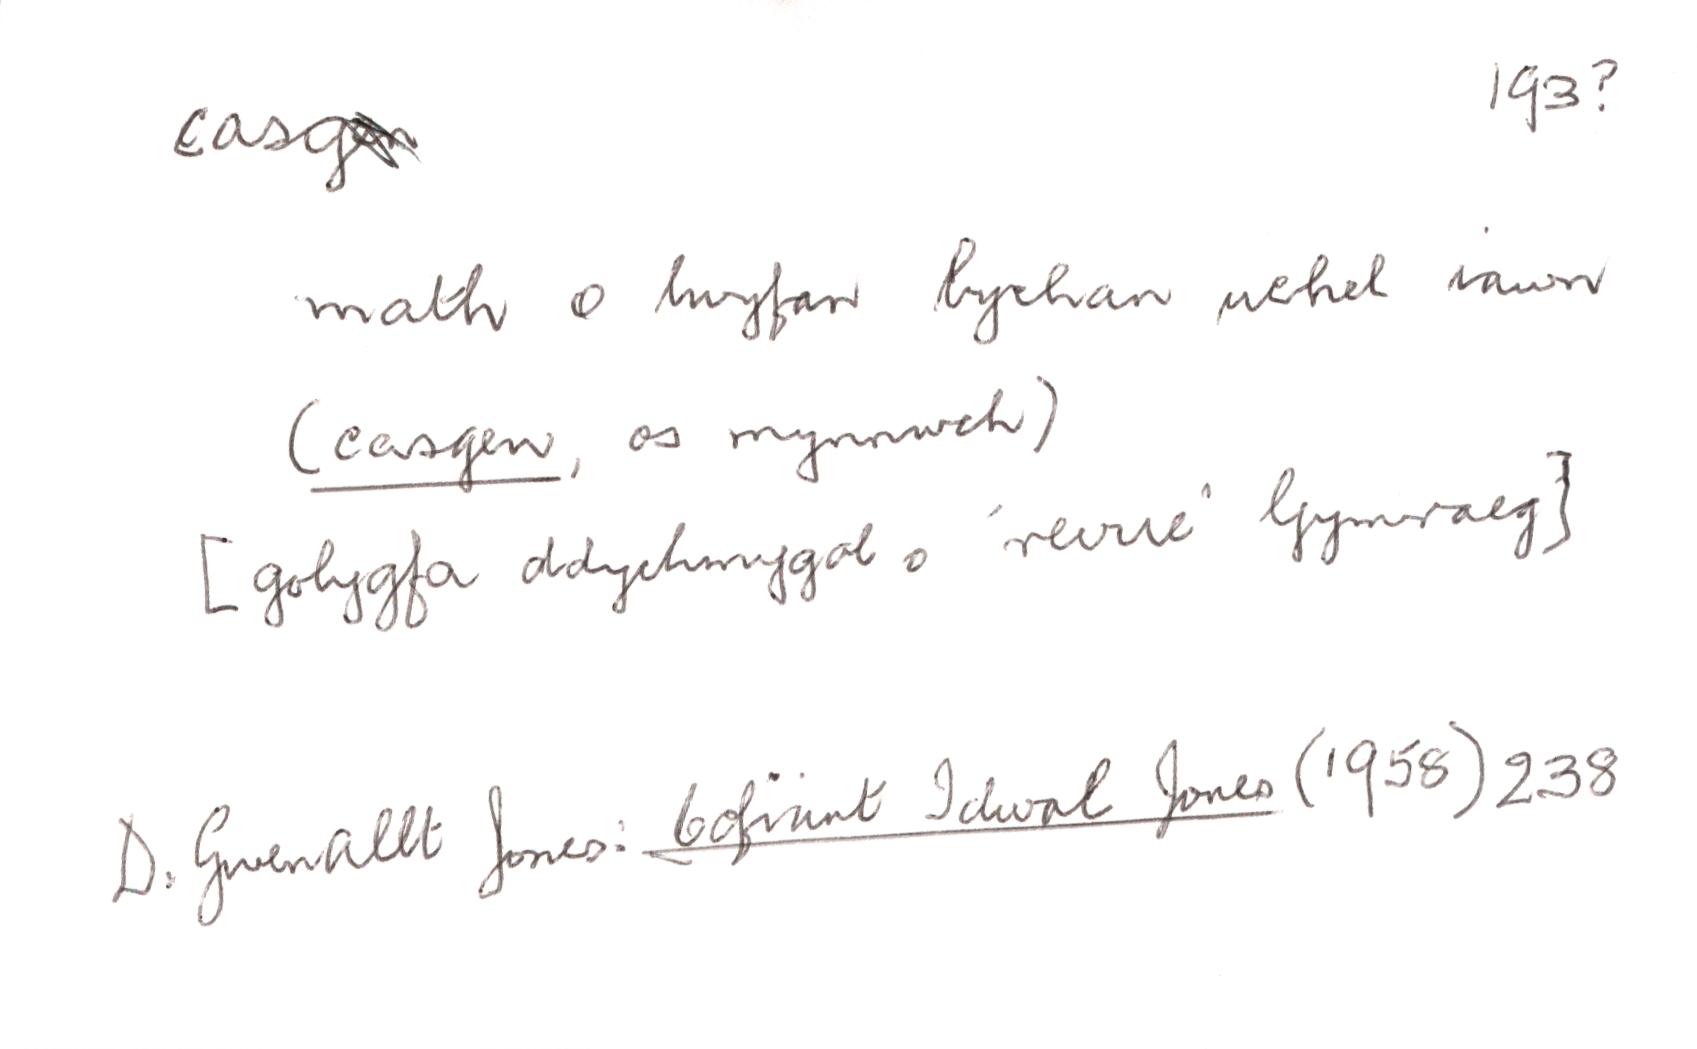 193?
casg
math o lwyfan bychan uchel iawn
(casgen, os mynnwch)
[golygfa ddychmygol o 'revue' Gymraeg]
D. Gwenallt Jones: Cofiant Idwal Jones (1958) 238